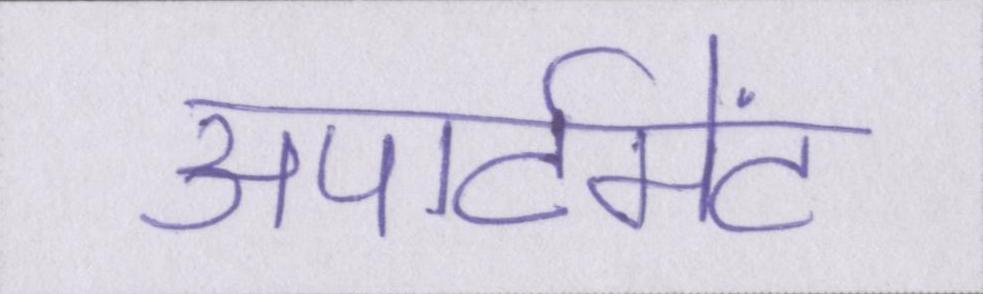 अपार्टमेंट